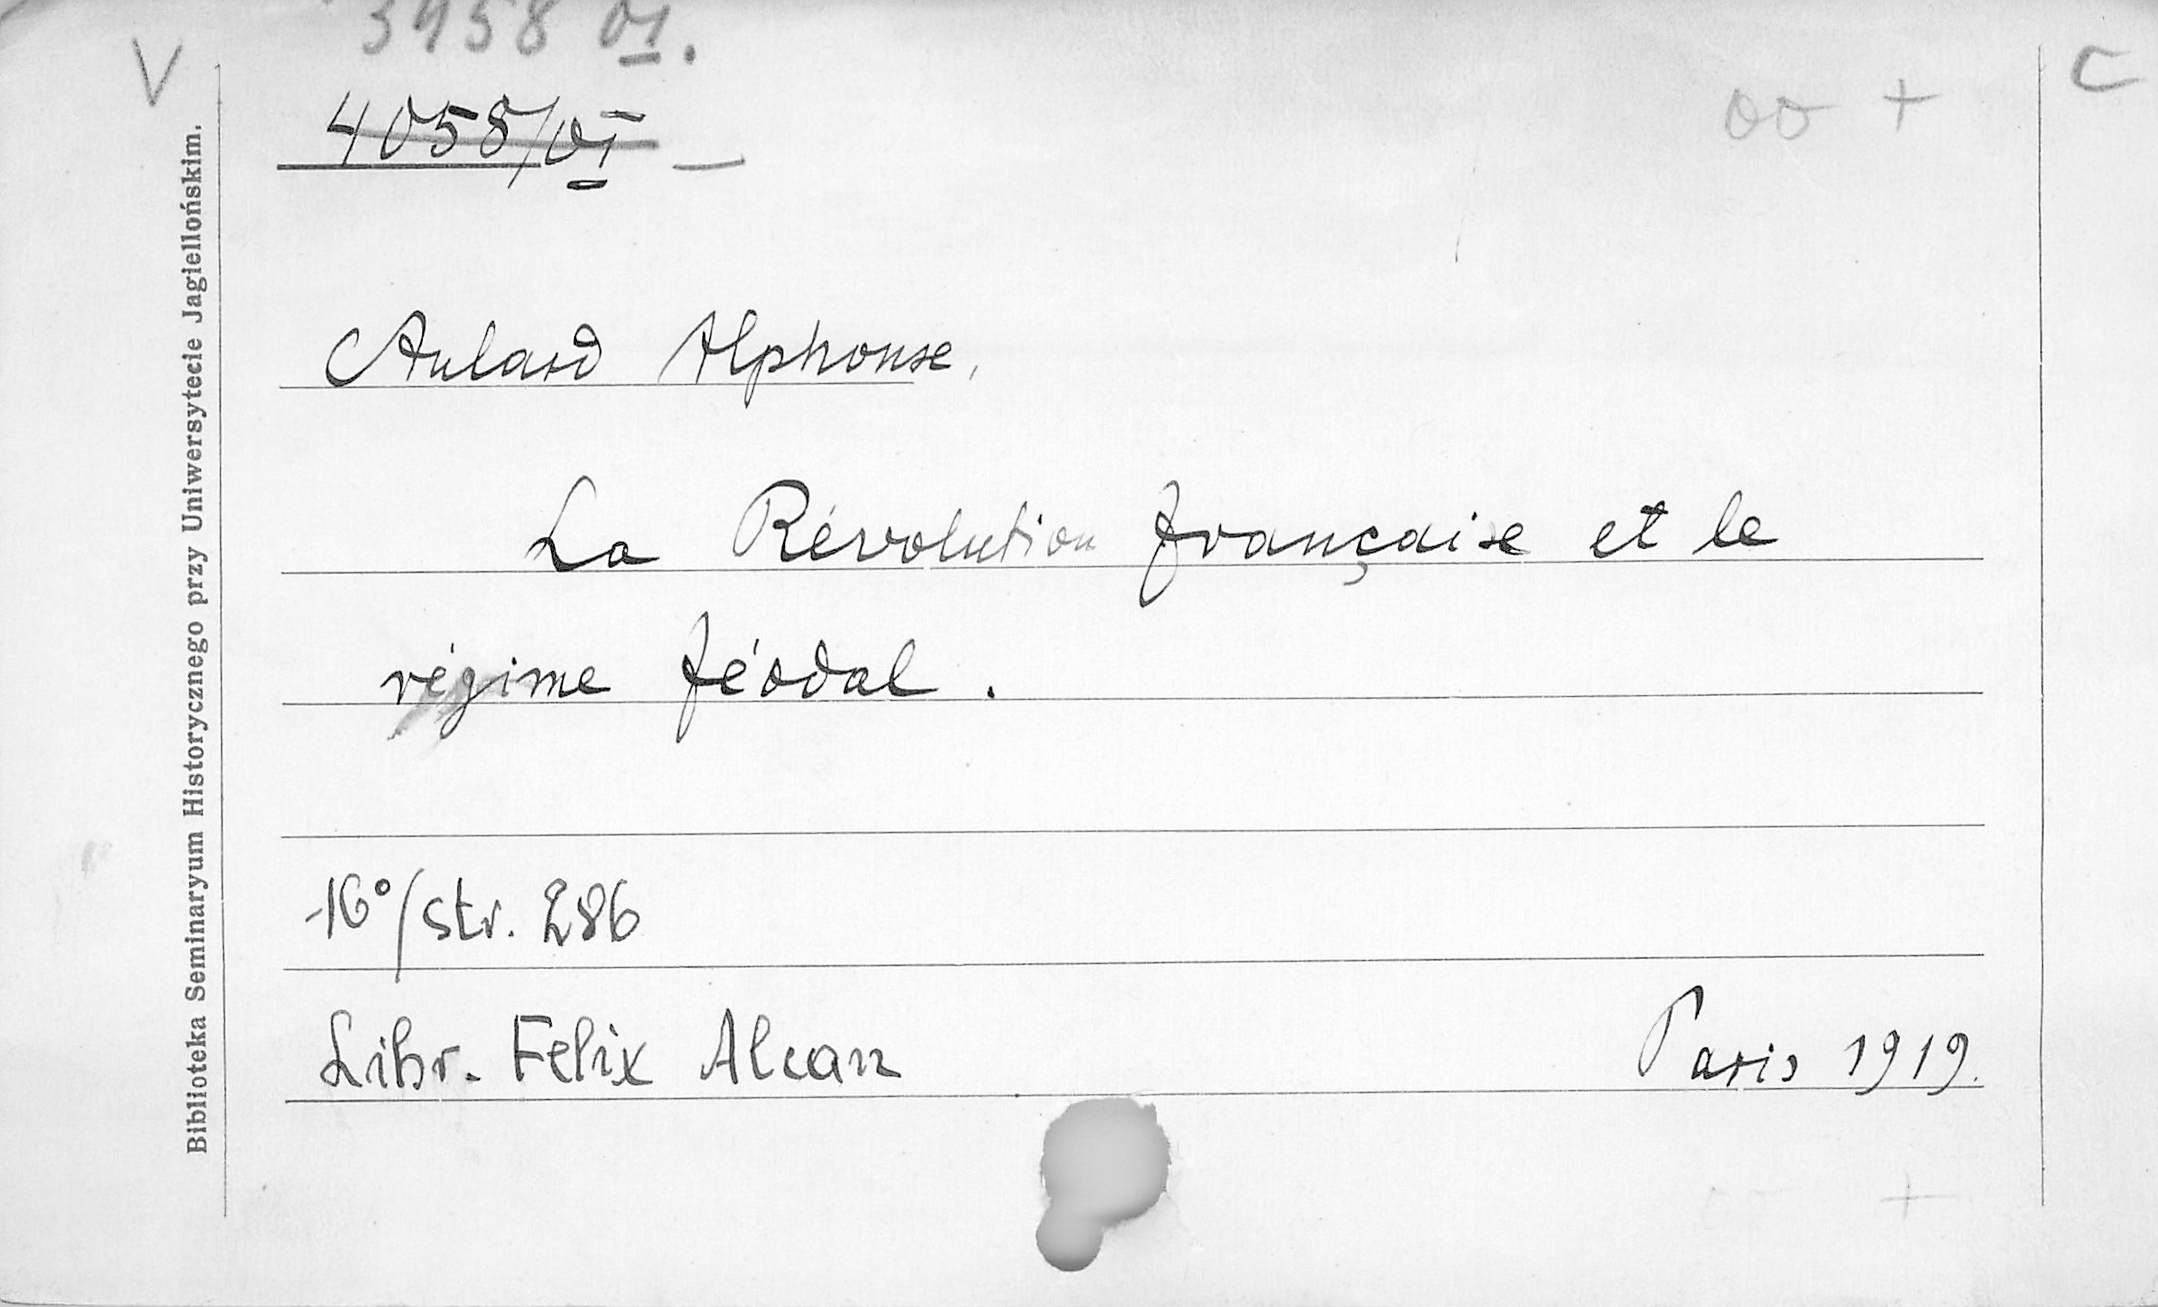 3958 VI.
V
4058/VI
oo +
C
Aulard Alphonse,
La Révolution française et le
régime féodal.
16°/str. 286
Libr. Felix Alcan
Paris 1919.
+
Biblioteka Seminaryum Historycznego przy Uniwersytecie Jagiellońskim.